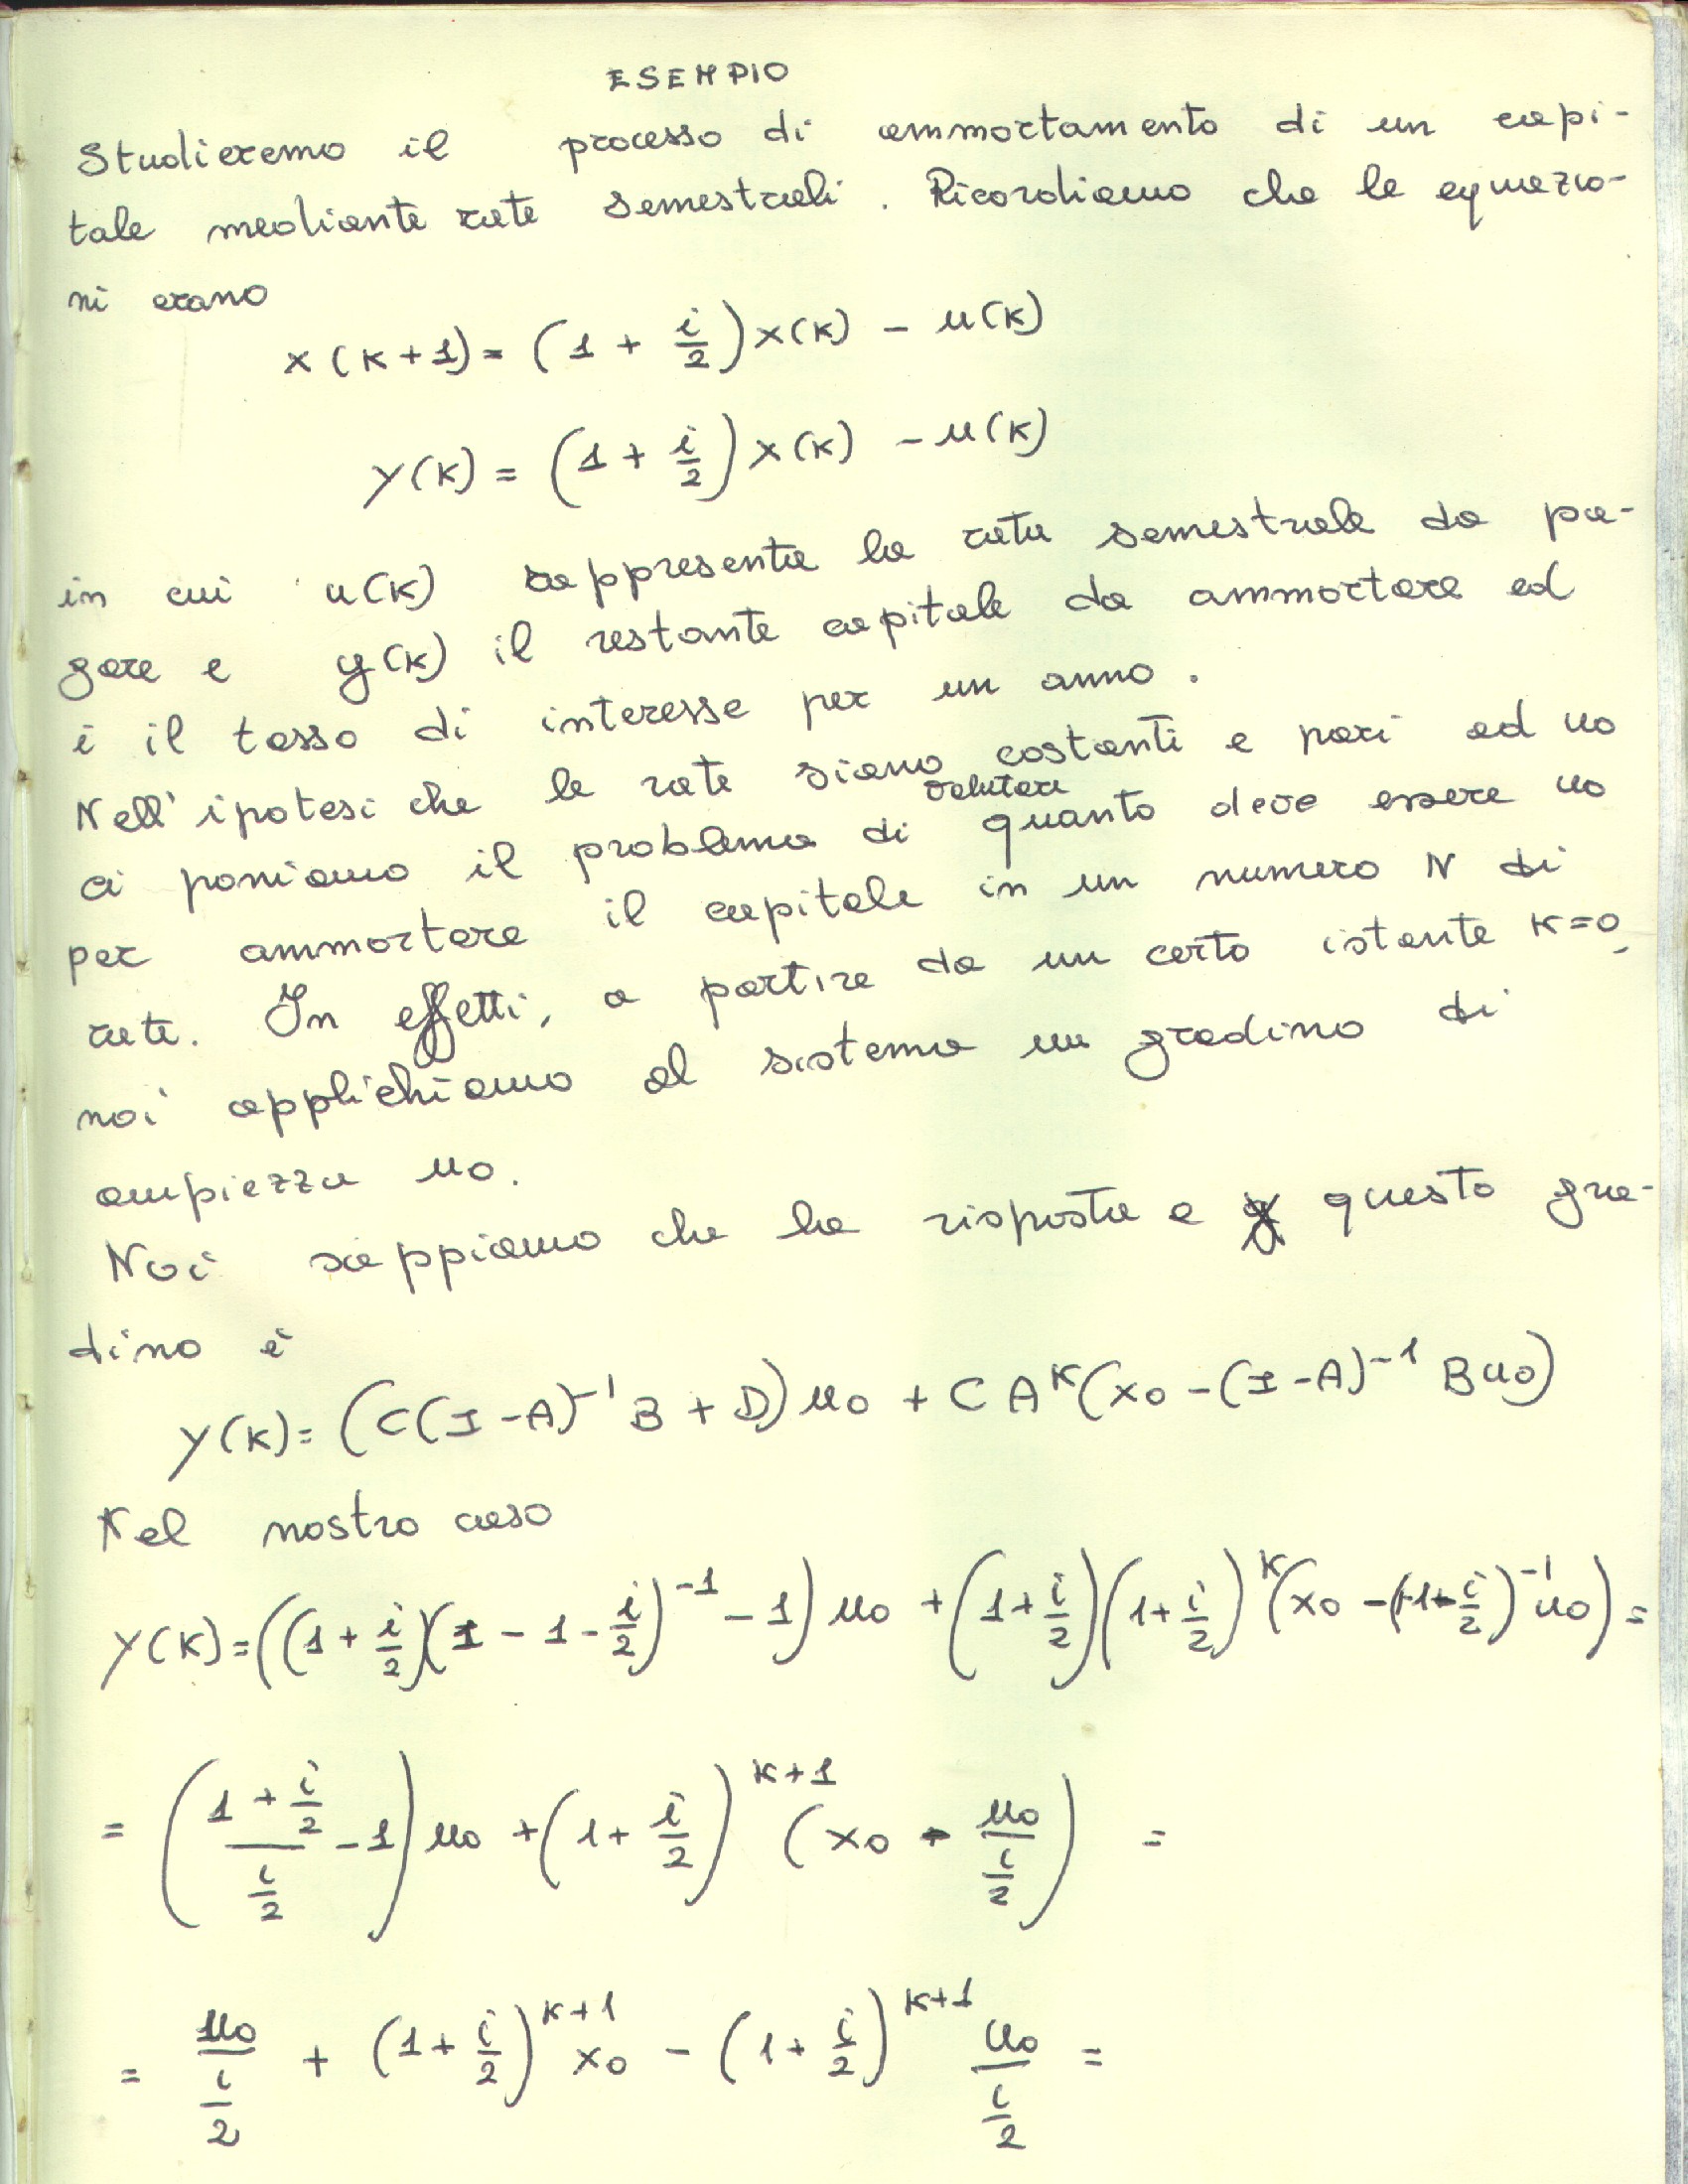 ESEMPIO
Studieremo il processo di ammortamento di un capi-
tale mediante rate semestrali. Ricordiamo che le equazio-
ni erano
x(k+1) = (1 + i/2) x(k) - u(k)
y(k) = (1 + i/2) x(k) - u(k)
in cui u(k) rappresenta la rata semestrale da pa-
gare e y(k) il restante capitale da ammortare ed
i il tasso di interesse per un anno.
Nell'ipotesi che le rate siano costanti e pari ad u0
ci poniamo il problema di valutare quanto deve essere u0
per ammortare il capitale in un numero N di
rate. In effetti, a partire da un certo istante k=0,
noi applichiamo al sistema un gradino di
ampiezza u0.
Noi sappiamo che la risposta a questo gra-
dino è
y(k) = (C(I-A)^-1 B + D) u0 + C A^k (x0 - (I-A)^-1 B u0)
Nel nostro caso
y(k) = ((1 + i/2)(1 - 1 - i/2)^-1 - 1) u0 + (1 + i/2)(1 + i/2)^k (x0 - ( i/2)^-1 u0) =
= ((1 + i/2)/(i/2) - 1) u0 + (1 + i/2)^k+1 (x0 - u0/(i/2)) =
= u0/(i/2) + (1 + i/2)^k+1 x0 - (1 + i/2)^k+1 u0/(i/2) =